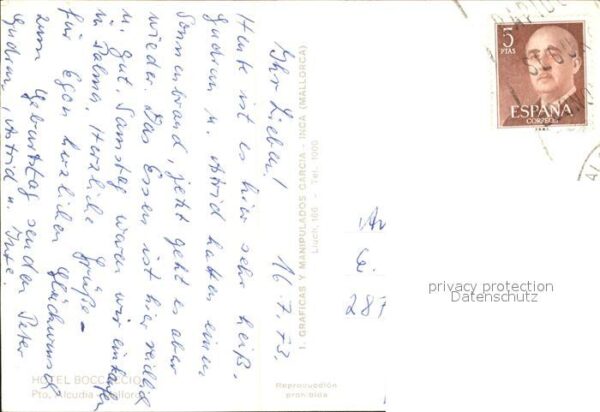 Ihr Lieben! 16.7.73.
Heute ist es hier sehr heiß.
Gudrun u. Astrid hatten einen
Sonnenbrand, jetzt geht es aber
wieder. Das Essen ist hier reichlich
u. gut. Samstag waren wir einkaufen
in Palma. Herzliche Grüße –
für Egon herzlichen Glückwunsch
zum Geburtstag senden Peter
Gudrun, Astrid u.
1. GRAFICAS Y MANIPULADOS GARCIA - INCA (MALLORCA)
Lluch, 186 - Tel. 1000
HOTEL BOCCACCIO
Pto. Alcudia (Mallorca)
Reproducción
prohibida
5
PTAS
ESPAÑA
CORREOS
287
privacy protection
Datenschutz